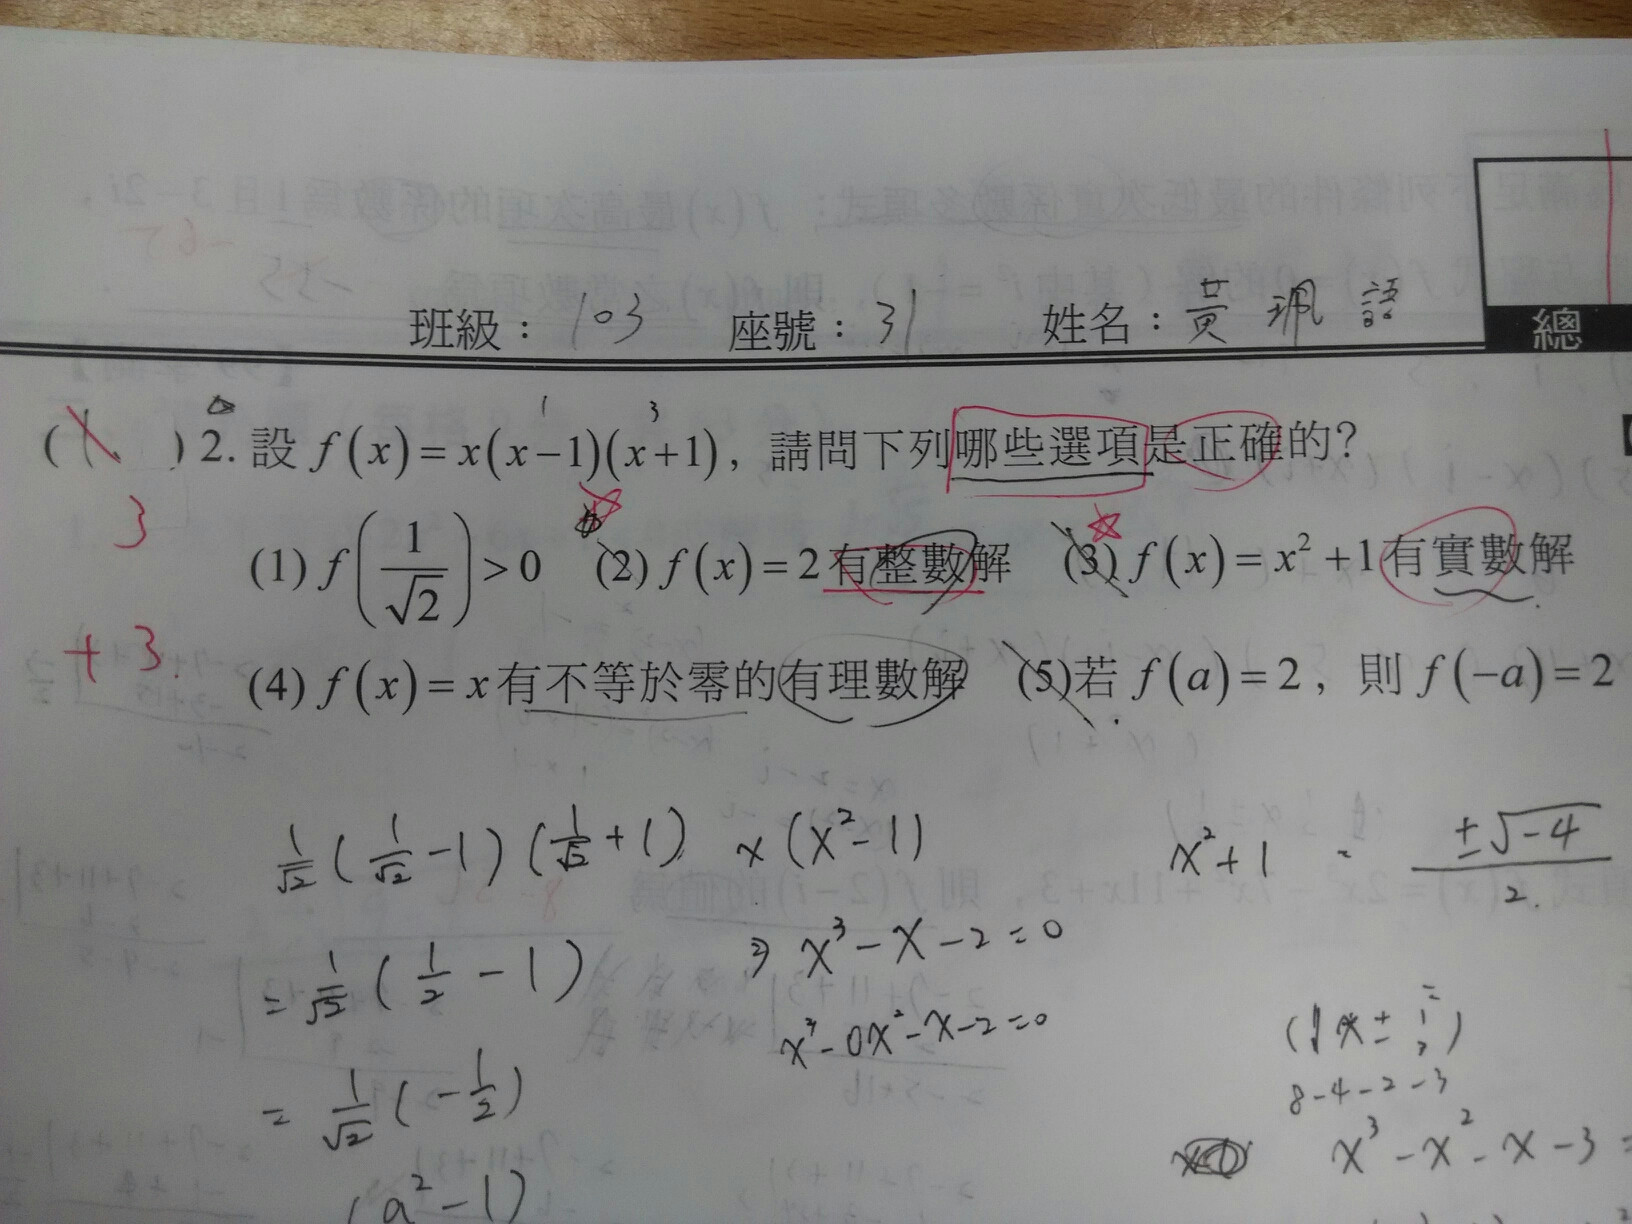 班級：103 座號：31 姓名：黃珮語
總
( 1. ) 2. 設 f(x)=x(x−1)(x+1)，請問下列哪些選項是正確的？
3
(1) f(1/√2)>0 (2) f(x)=2有整數解 (3) f(x)=x²+1有實數解
+3
(4) f(x)=x有不等於零的有理數解 (5)若 f(a)=2，則 f(−a)=2
1/√2 (1/√2 -1) (1/√2 +1) x(x²-1) x²+1 = ±√-4 / 2.
= 1/√2 (1/2 -1) ⇒ x³-x-2=0
x³-0x²-x-2=0
= 1/√2 (-1/2)
8-4-2-3
x³-x²-x-3=
(a²-1)